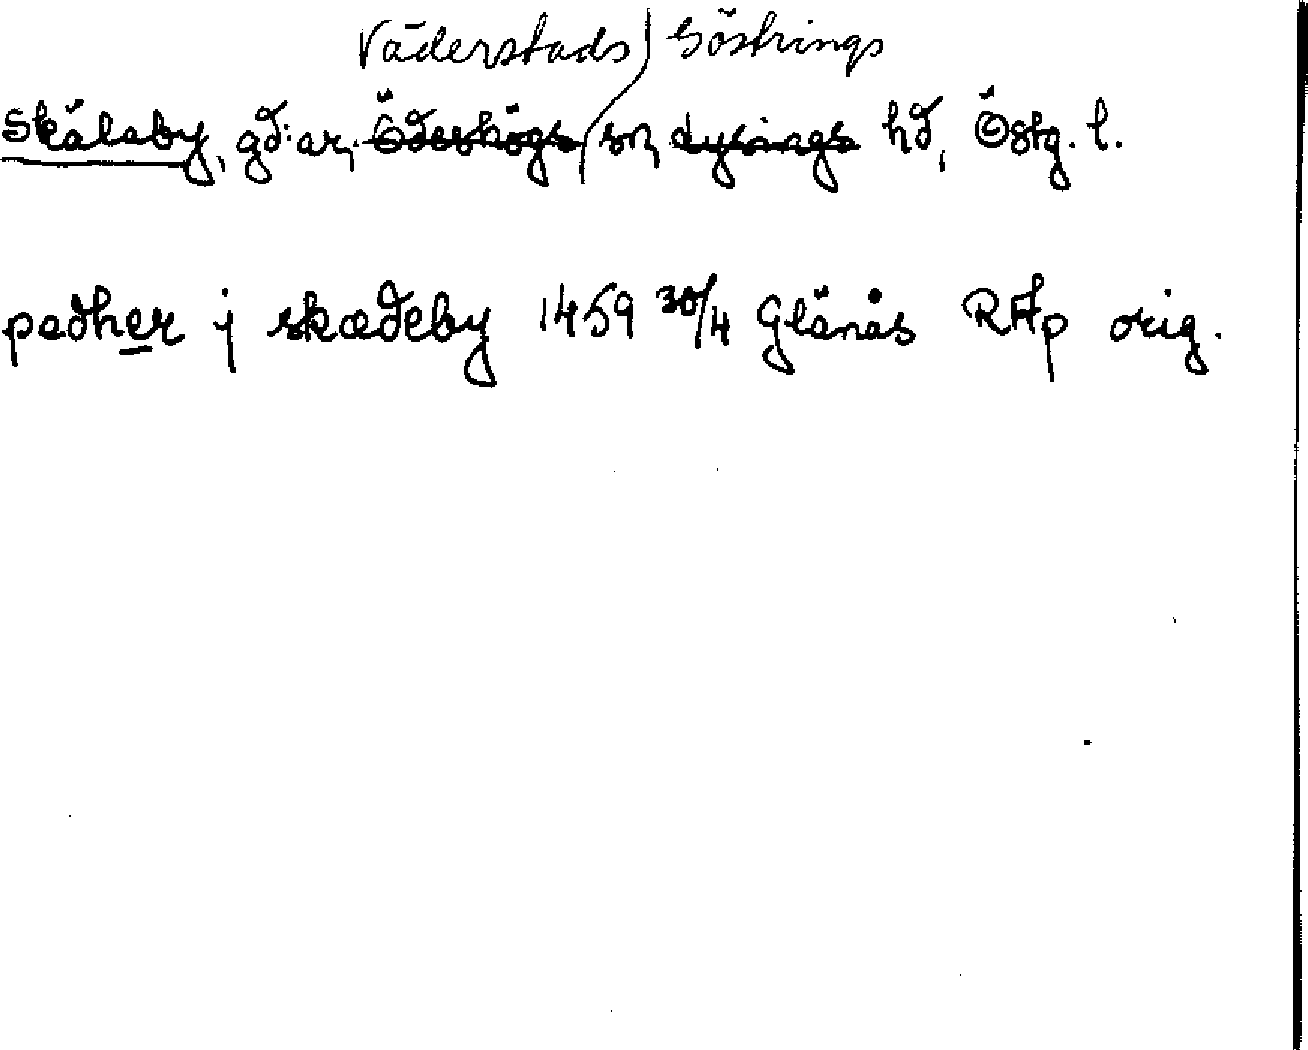 Väderstads Göstrings
Skälaby, gđ:ar, Ödeshögs sn, Lysings hđ, Östg. l.
pedher j skædeby 1459 30/4 Glänås RAp orig.